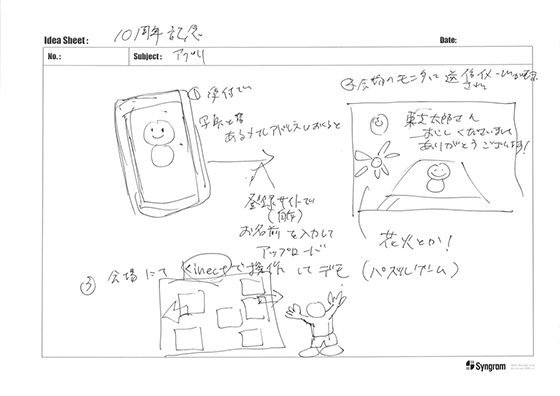 Idea Sheet : 101周年記念
Date:
No.:
Subject: アプリ
① 受付で
写真を撮
あるメールアドレスにおくると
登録サイトで
(自作)
お名前を入力して
アップロード
② 会場のモニタに送信イメージが表示
され
東芝太郎さん
おこしくださいまして
ありがとうございます!
花火とか!
③ 会場にて Kinectで操作してデモ (パズルゲーム)
Syngram